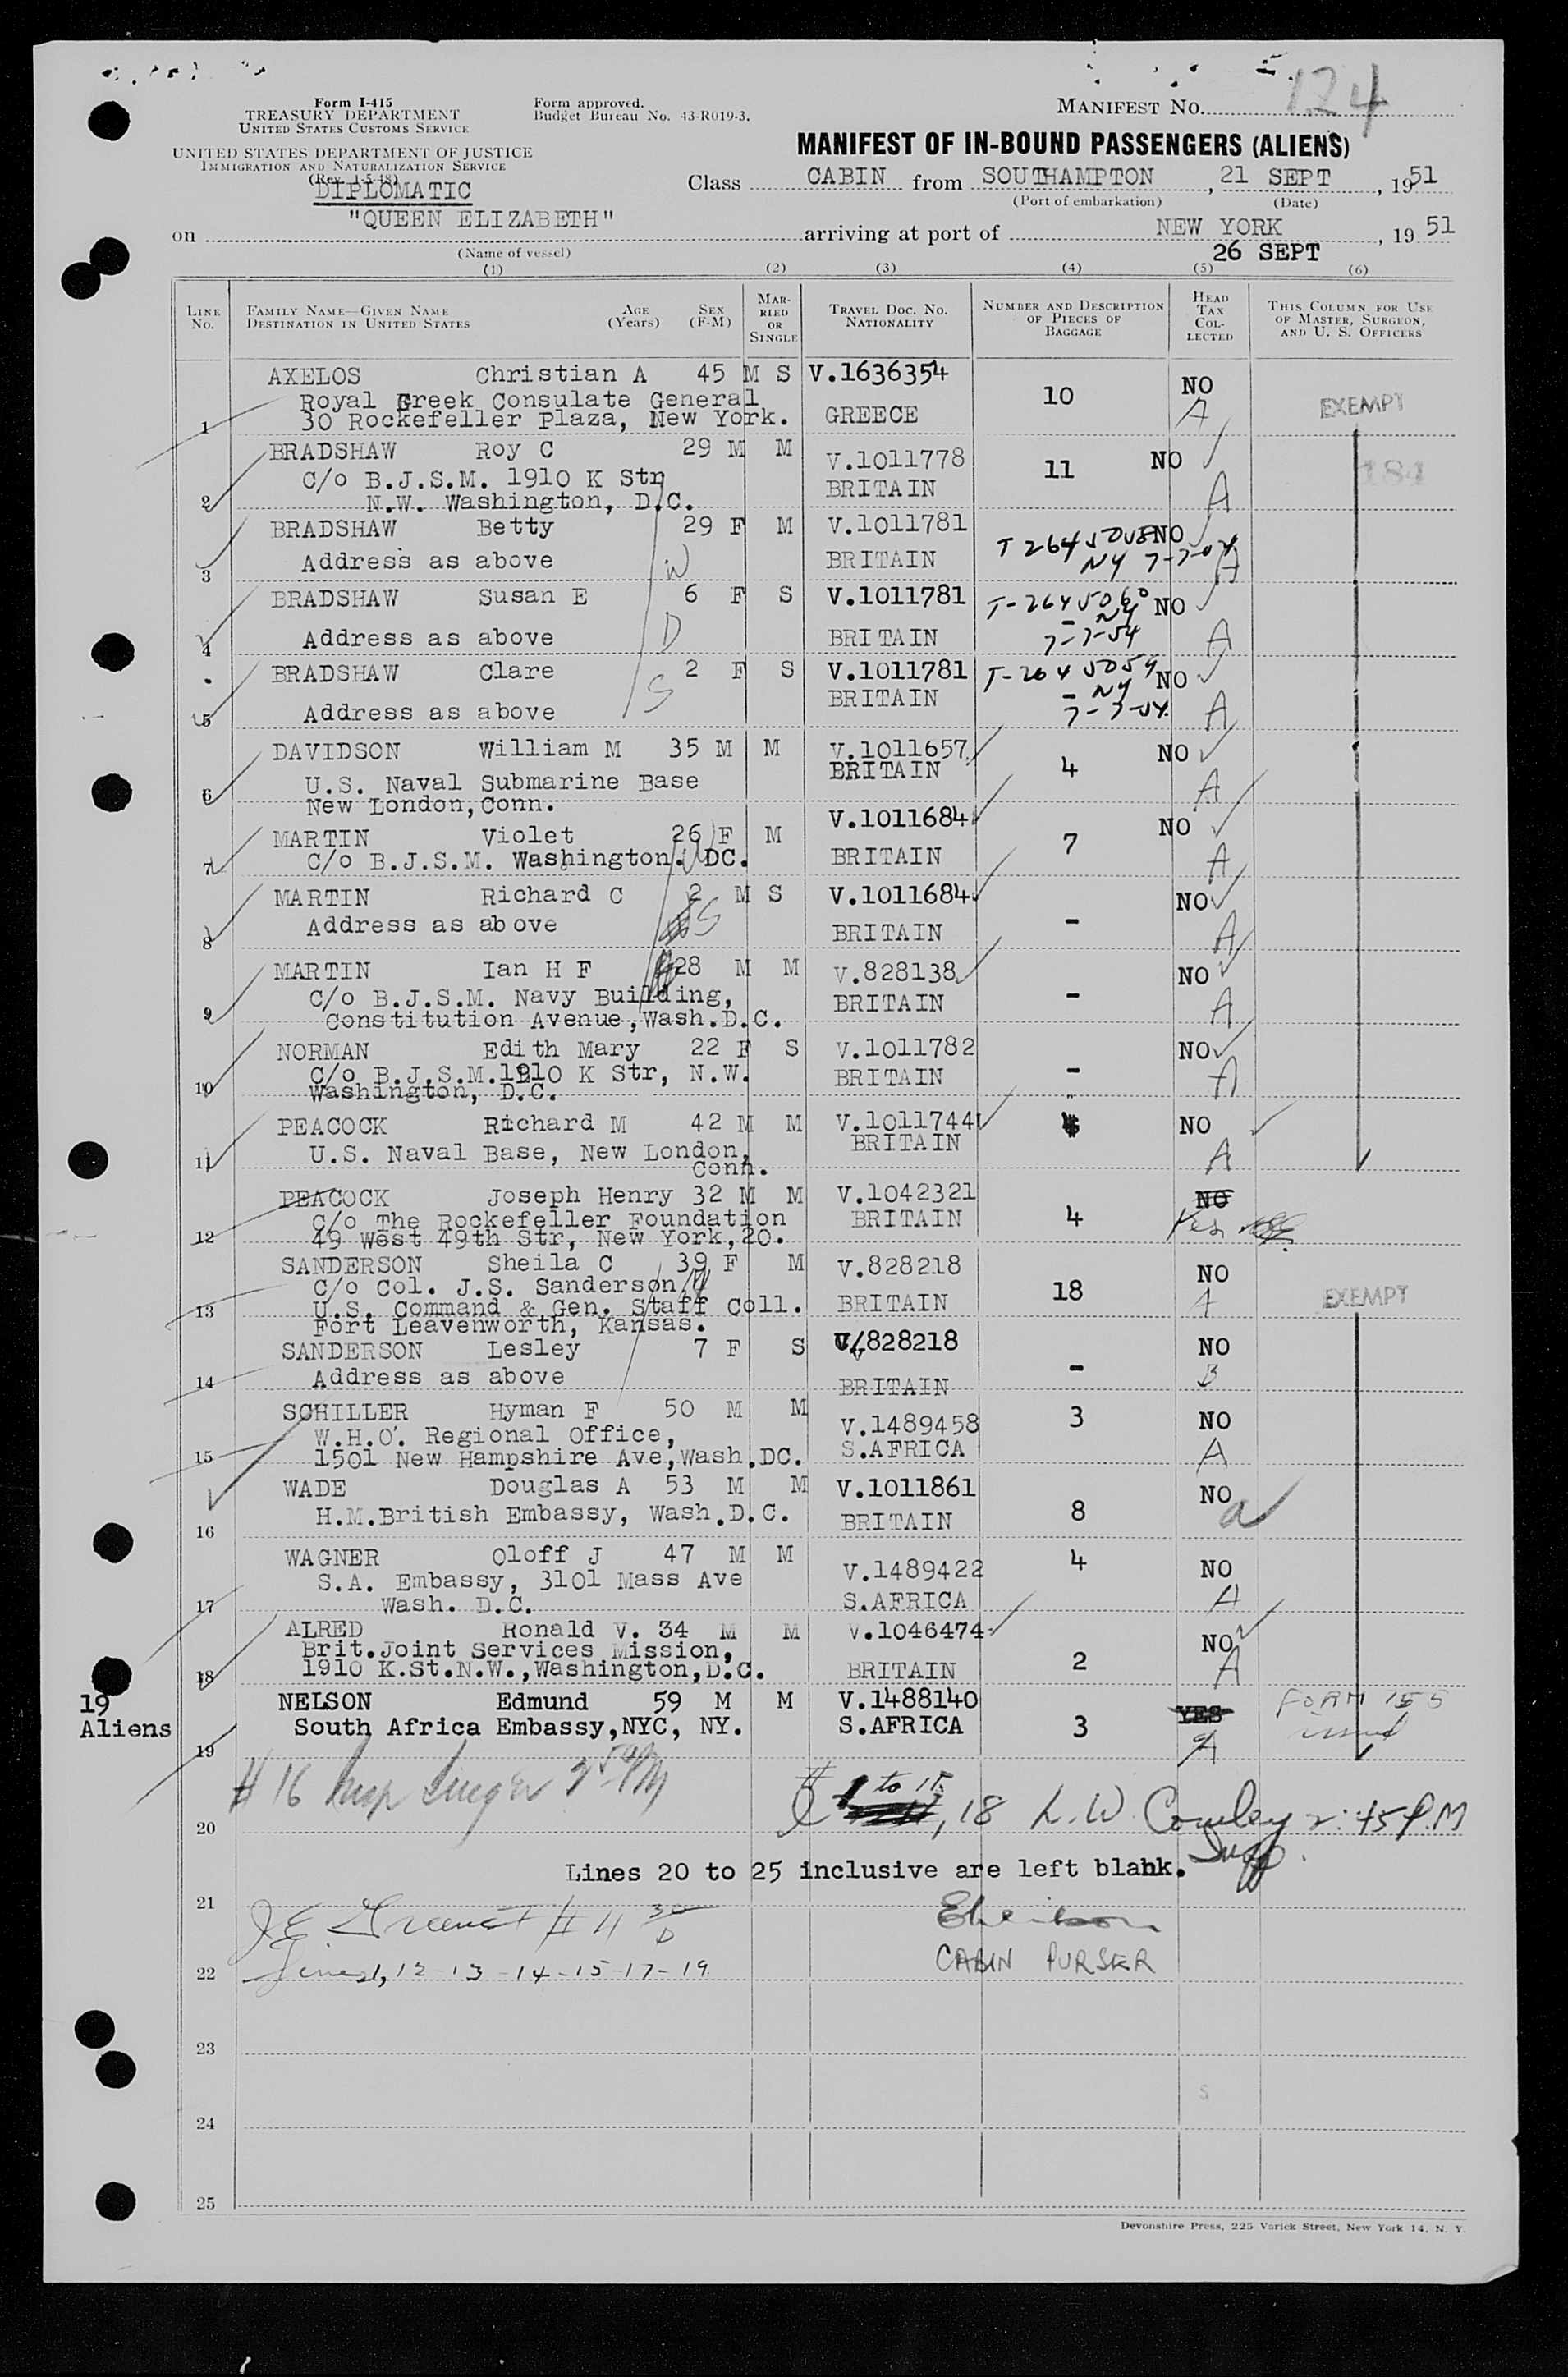 124
Form I-415
TREASURY DEPARTMENT
UNITED STATES CUSTOMS SERVICE
Form approved.
Budget Bureau No. 43-R019-3.
MANIFEST NO. 124
UNITED STATES DEPARTMENT OF JUSTICE
IMMIGRATION AND NATURALIZATION SERVICE
(Rev. 1-5-48)
MANIFEST OF IN-BOUND PASSENGERS (ALIENS)
DIPLOMATIC
Class CABIN from SOUTHAMPTON, 21 SEPT, 1951
(Port of embarkation) (Date)
on "QUEEN ELIZABETH" arriving at port of NEW YORK, 19 51
(Name of vessel) 26 SEPT
(1) (2) (3) (4) (5) (6)
LINE No. FAMILY NAME—GIVEN NAME DESTINATION IN UNITED STATES AGE (Years) SEX (F-M) MARRIED OR SINGLE TRAVEL DOC. NO. NATIONALITY NUMBER AND DESCRIPTION OF PIECES OF BAGGAGE HEAD TAX COLLECTED THIS COLUMN FOR USE OF MASTER, SURGEON, AND U. S. OFFICERS
AXELOS Christian A 45 M S V.1636354 10 NO
Royal Greek Consulate General EXEMPT
1 30 Rockefeller Plaza, New York. GREECE A
BRADSHAW Roy C 29 M M V.1011778 11 NO
C/o B.J.S.M. 1910 K Str 184
2 N.W. Washington, D.C. BRITAIN A
BRADSHAW Betty 29 F M V.1011781 NO
3 Address as above W BRITAIN NY 7-7-54 A
BRADSHAW Susan E 6 F S V.1011781 T-2645060 NO
4 Address as above D BRITAIN - NY 7-7-54 A
BRADSHAW Clare 2 F S V.1011781 T-2645059 NO
5 Address as above S BRITAIN - NY 7-7-54 A
DAVIDSON William M 35 M M V.1011657 4 NO
U.S. Naval Submarine Base BRITAIN
6 New London, Conn. A
MARTIN Violet 26 F M V.1011684 7 NO
7 C/o B.J.S.M. Washington. DC. W BRITAIN A
MARTIN Richard C 2 M S V.1011684 - NO
8 Address as above S BRITAIN A
MARTIN Ian H F 28 M M V.828138 - NO
C/o B.J.S.M. Navy Building, BRITAIN
9 Constitution Avenue, Wash.D.C. A
NORMAN Edith Mary 22 F S V.1011782 - NO
C/o B.J.S.M.1910 K Str, N.W. BRITAIN
10 Washington, D.C. A
PEACOCK Richard M 42 M M V.1011744 NO
11 U.S. Naval Base, New London, Conn. BRITAIN A
PEACOCK Joseph Henry 32 M M V.1042321 4 NO
C/o The Rockefeller Foundation BRITAIN Yes
12 49 West 49th Str, New York,20.
SANDERSON Sheila C 39 F M V.828218 18 NO
C/o Col. J.S. Sanderson W
13 U.S. Command & Gen. Staff Coll. BRITAIN A EXEMPT
Fort Leavenworth, Kansas.
SANDERSON Lesley 7 F S V.828218 - NO
14 Address as above BRITAIN B
SCHILLER Hyman F 50 M M V.1489458 3 NO
W.H.O. Regional Office, S.AFRICA
15 1501 New Hampshire Ave,Wash.DC. A
WADE Douglas A 53 M M V.1011861 8 NO
H.M.British Embassy, Wash.D.C. BRITAIN a
16
WAGNER Oloff J 47 M M V.1489422 4 NO
S.A. Embassy, 3101 Mass Ave
17 Wash. D.C. S.AFRICA A
ALRED Ronald V. 34 M M V.1046474 2 NO
Brit.Joint Services Mission,
18 1910 K.St.N.W.,Washington,D.C. BRITAIN A
19 Aliens
NELSON Edmund 59 M M V.1488140 3 YES FORM 155
South Africa Embassy,NYC, NY. S.AFRICA issued
19 A
# 16 Insp
20 1 to 11, 18 L.W. Cowley 2:45 P.M
Lines 20 to 25 inclusive are left blank. Insp.
21 # 11
22 Lines 1, 12-13-14-15-17-19 CABIN PURSER
23
24
25
Devonshire Press, 225 Varick Street, New York 14, N. Y.